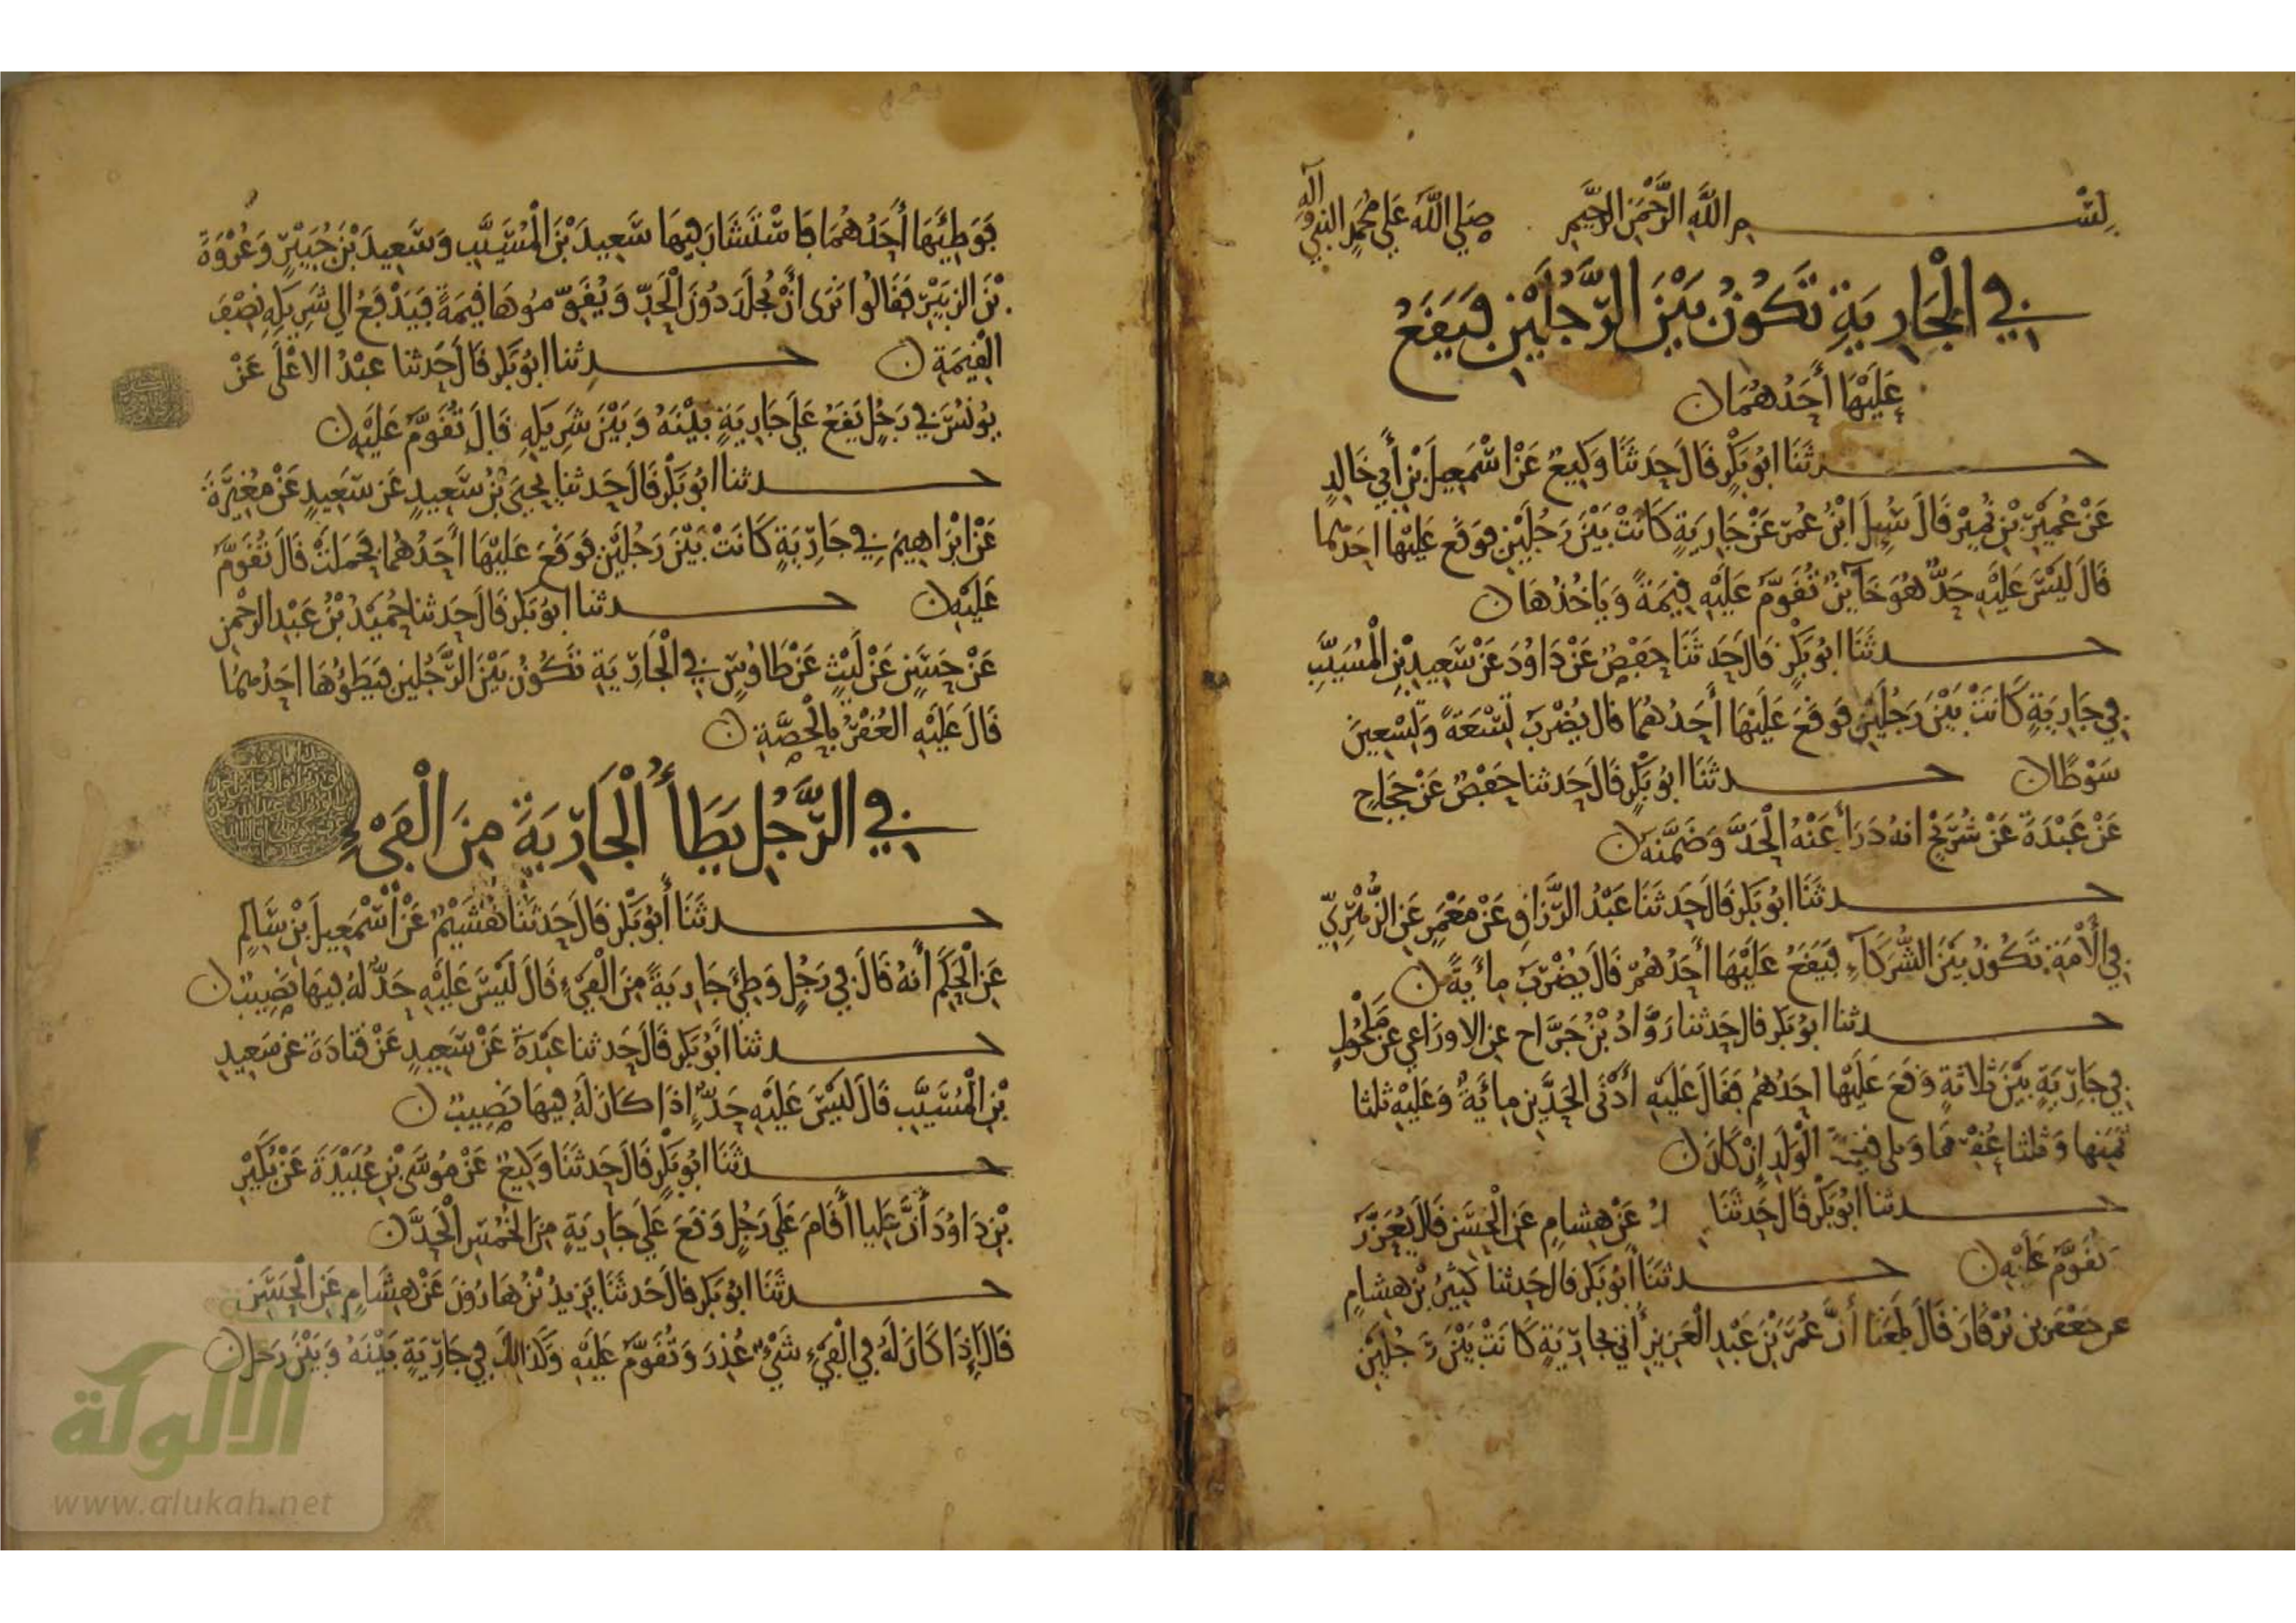 بِسْم اللَّهِ الرَّحْمَنِ الرَّحِيمِ صَلى اللَّه عَلى مُحَمَدٍ النبي وآله
فِي الْجَارِيَةِ تَكُونُ بَيْنَ الرَّجُلَيْنِ فَيَقَعُ
عَلَيْهَا أَحَدُهُمَا ن
حدثَنَا ابُو بَكْرٍ قَالَ حَدَثَنَا وَكِيعٌ عَنْ اسْمَعِيلَ بْنِ أَبِي خَالِدٍ
عَنْ عُمَيْرِ بْنِ نُمَيْرٍ قَالَ سُئِلَ ابْنُ عُمَرَ عَنْ جَارِيَةٍ كَانَتْ بَيْنَ رَجُلَيْنِ فَوَقَعَ عَلَيْهَا احَدهما
قَالَ لَيْسَ عَلَيْهِ حَدٌّ هُوَ خَائِنٌ تُقَوَّمُ عَلَيْهِ قِيمَةً وَيَاخُذُهَا ن
حدثَنَا ابُو بَكْرٍ قَالَ حَدَثَنَا حَفْصٌ عَنْ دَاوُدَ عَنْ سَعِيدِ بْنِ الْمُسَيَّبِ
فِي جَارِيَةٍ كَانَتْ بَيْنَ رَجُلَيْنِ فَوَقَعَ عَلَيْهَا أَحَدُهُمَا قال يُضْرَبُ تِسْعَةً وَتِسْعِينَ
سَوْطًا ن حدثَنَا ابُو بَكْرٍ قَالَ حَدثنا حَفْصٌ عَنْ حَجَاجٍ
عَنْ عَبْدَةَ عَنْ شُرَيْحٍ انهُ دَرَأَ عَنْهُ الْحَدَّ وَضَمَّنَه ن
حدثَنَا ابُو بَكْرٍ قَالَ حَدَثَنَا عَبْدُ الرَّزَاقِ عَنْ مَعْمَرٍ عَنِ الزُّهْرِيِّ
فِي الْأَمَةِ تَكُونُ بَيْنَ الشُّرَكَاءِ فَيَقَعُ عَلَيْهَا أَحَدُهُمْ قَالَ يُضْرَبُ مِائَةً ن
حدثنا ابُو بَكْرٍ قال حَدثنا رَوَّادُ بْنُ جَرَّاحٍ عن الاوزَاعِي عَنْ مَكْحُولٍ
فِي جَارِيَةٍ بَيْنَ ثَلاثَةٍ وَقَعَ عَلَيْهَا احَدُهُم فقال عَلَيْهِ أَدْنَى الْحَدَّيْنِ مِائَةٌ وَعَلَيْهِ ثلثا
ثَمَنِهَا وَثلثا عُقْرها قِيمَة الْوَلَدِ إِنْ كَانَ ن
حدثنا ابُو بَكْرٍ قَالَ حَدَثَنَا عَنْ هِشامٍ عَنِ الْحَسَنِ قَالَ يُعَزَّرُ
تُقَوَّمُ عَلَيْهِ ن حدثَنَا أَبُو بَكْرٍ قال حَدثنا كَثِيرُ بْنُ هِشامٍ
عن جَعْفَرِ بن بُرْقَانَ قَالَ بَلَغَنَا أَنَّ عُمَرَ بْنَ عَبْدِ الْعَزِيزِ أُتِيَ بِجَارِيَةٍ كَانَتْ بَيْنَ رَجُلَيْنِ
فَوَطِئَهَا أَحَدُهُمَا فَاسْتَشَارَ فِيهَا سَعِيدَ بْنَ الْمُسَيَّبِ وَسَعِيدَ بْنَ جُبَيْرٍ وَعُرْوَةَ
بْنَ الزبَيْرِ فَقَالُوا نَرَى أَنْ يُجْلَدَ دُونَ الْحَدِّ وَيُقَوِّمُوهَا قِيمَةً فَيَدْفَعُ الى شَرِيكِهِ نِصْفَ
الْقِيمَةِ ن حدثنا ابُو بَكْرٍ قَالَ حَدثنا عَبْدُ الاعْلَى عَنْ
يُونُسَ فِي رَجُلٍ يَقَعُ عَلَى جَارِيَةٍ بَيْنَهُ وَبَيْنَ شَرِيكِهِ قَالَ تُقَوَّمُ عَلَيْهِ ن
حدثنا ابُو بَكْرٍ قَالَ حَدثنا يحيَى بْنُ سَعِيدٍ عَنْ سَعِيدٍ عَنْ مُغِيرَةَ
عَنْ ابْرَاهِيمَ فِي جَارِيَةٍ كَانَتْ بَيْنَ رَجُلَيْنِ فَوَقَعَ عَلَيْهَا أَحَدُهُمَا فَحَمَلَتْ قَالَ تُقَوَّمُ
عَلَيْهِ ن حدثنا ابُو بَكْرٍ قَالَ حَدثنا حُمَيْدُ بْنُ عَبْدِ الرحْمنِ
عَنْ حَسَنٍ عَنْ لَيْثٍ عَنْ طَاوُسٍ فِي الْجَارِيَةِ تَكُونُ بَيْنَ الرَّجُلَيْنِ فَيَطَؤُهَا احَدُهُمَا
قَالَ عَلَيْهِ الْعُقْرُ بِالْحِصَّةِ ن
فِي الرَّجُلِ يَطَأُ الْجَارِيَةَ مِنَ الْفَيْءِ
حدثَنَا أَبُو بَكْرٍ قَالَ حَدثَنَا هُشَيْمٌ عَنْ اسْمَعِيلَ بْنِ سَالِمٍ
عَنِ الْحَكَمِ أَنهُ قَالَ فِي رَجُلٍ وَطِئَ جَارِيَةً مِنَ الْفَيْءِ قَالَ لَيْسَ عَلَيْهِ حَدٌّ لَهُ فِيهَا نَصِيبٌ ن
حدثنا ابُو بَكْرٍ قَالَ حَدثنا عَبْدَةُ عَنْ سَعِيدٍ عَنْ قَتَادَةَ عَنْ سَعِيدِ
بْنِ الْمُسَيَّبِ قَالَ لَيْسَ عَلَيْهِ حَدٌّ اذَا كَانَ لَهُ فِيهَا نَصِيبٌ ن
حدثَنَا ابُو بَكْرٍ قَالَ حَدثَنَا وَكِيعٌ عَنْ مُوسَى بْنِ عُبَيْدَةَ عَنْ بُكَيْرِ
بْنِ دَاوُدَ أَنَّ عَلِيا أَقَامَ عَلَى رَجُلٍ وَقَعَ عَلَى جَارِيَةٍ مِنَ الْخُمُسِ الْحَدَّ ن
حدثَنَا ابُو بَكْرٍ قال حَدثَنَا يَزِيدُ بْنُ هَارُونَ عَنْ هِشَامٍ عَنِ الْحَسَنِ
قَالَ إِذَا كَانَ لَهُ فِي الْفَيْءِ شَيْءٌ عُذِرَ وَتُقَوَّمُ عَلَيْهِ وَكَذَالِكَ فِي جَارِيَةٍ بَيْنَهُ وَبَيْنَ رَجُلٍ ن
الألوكة
www.alukah.net